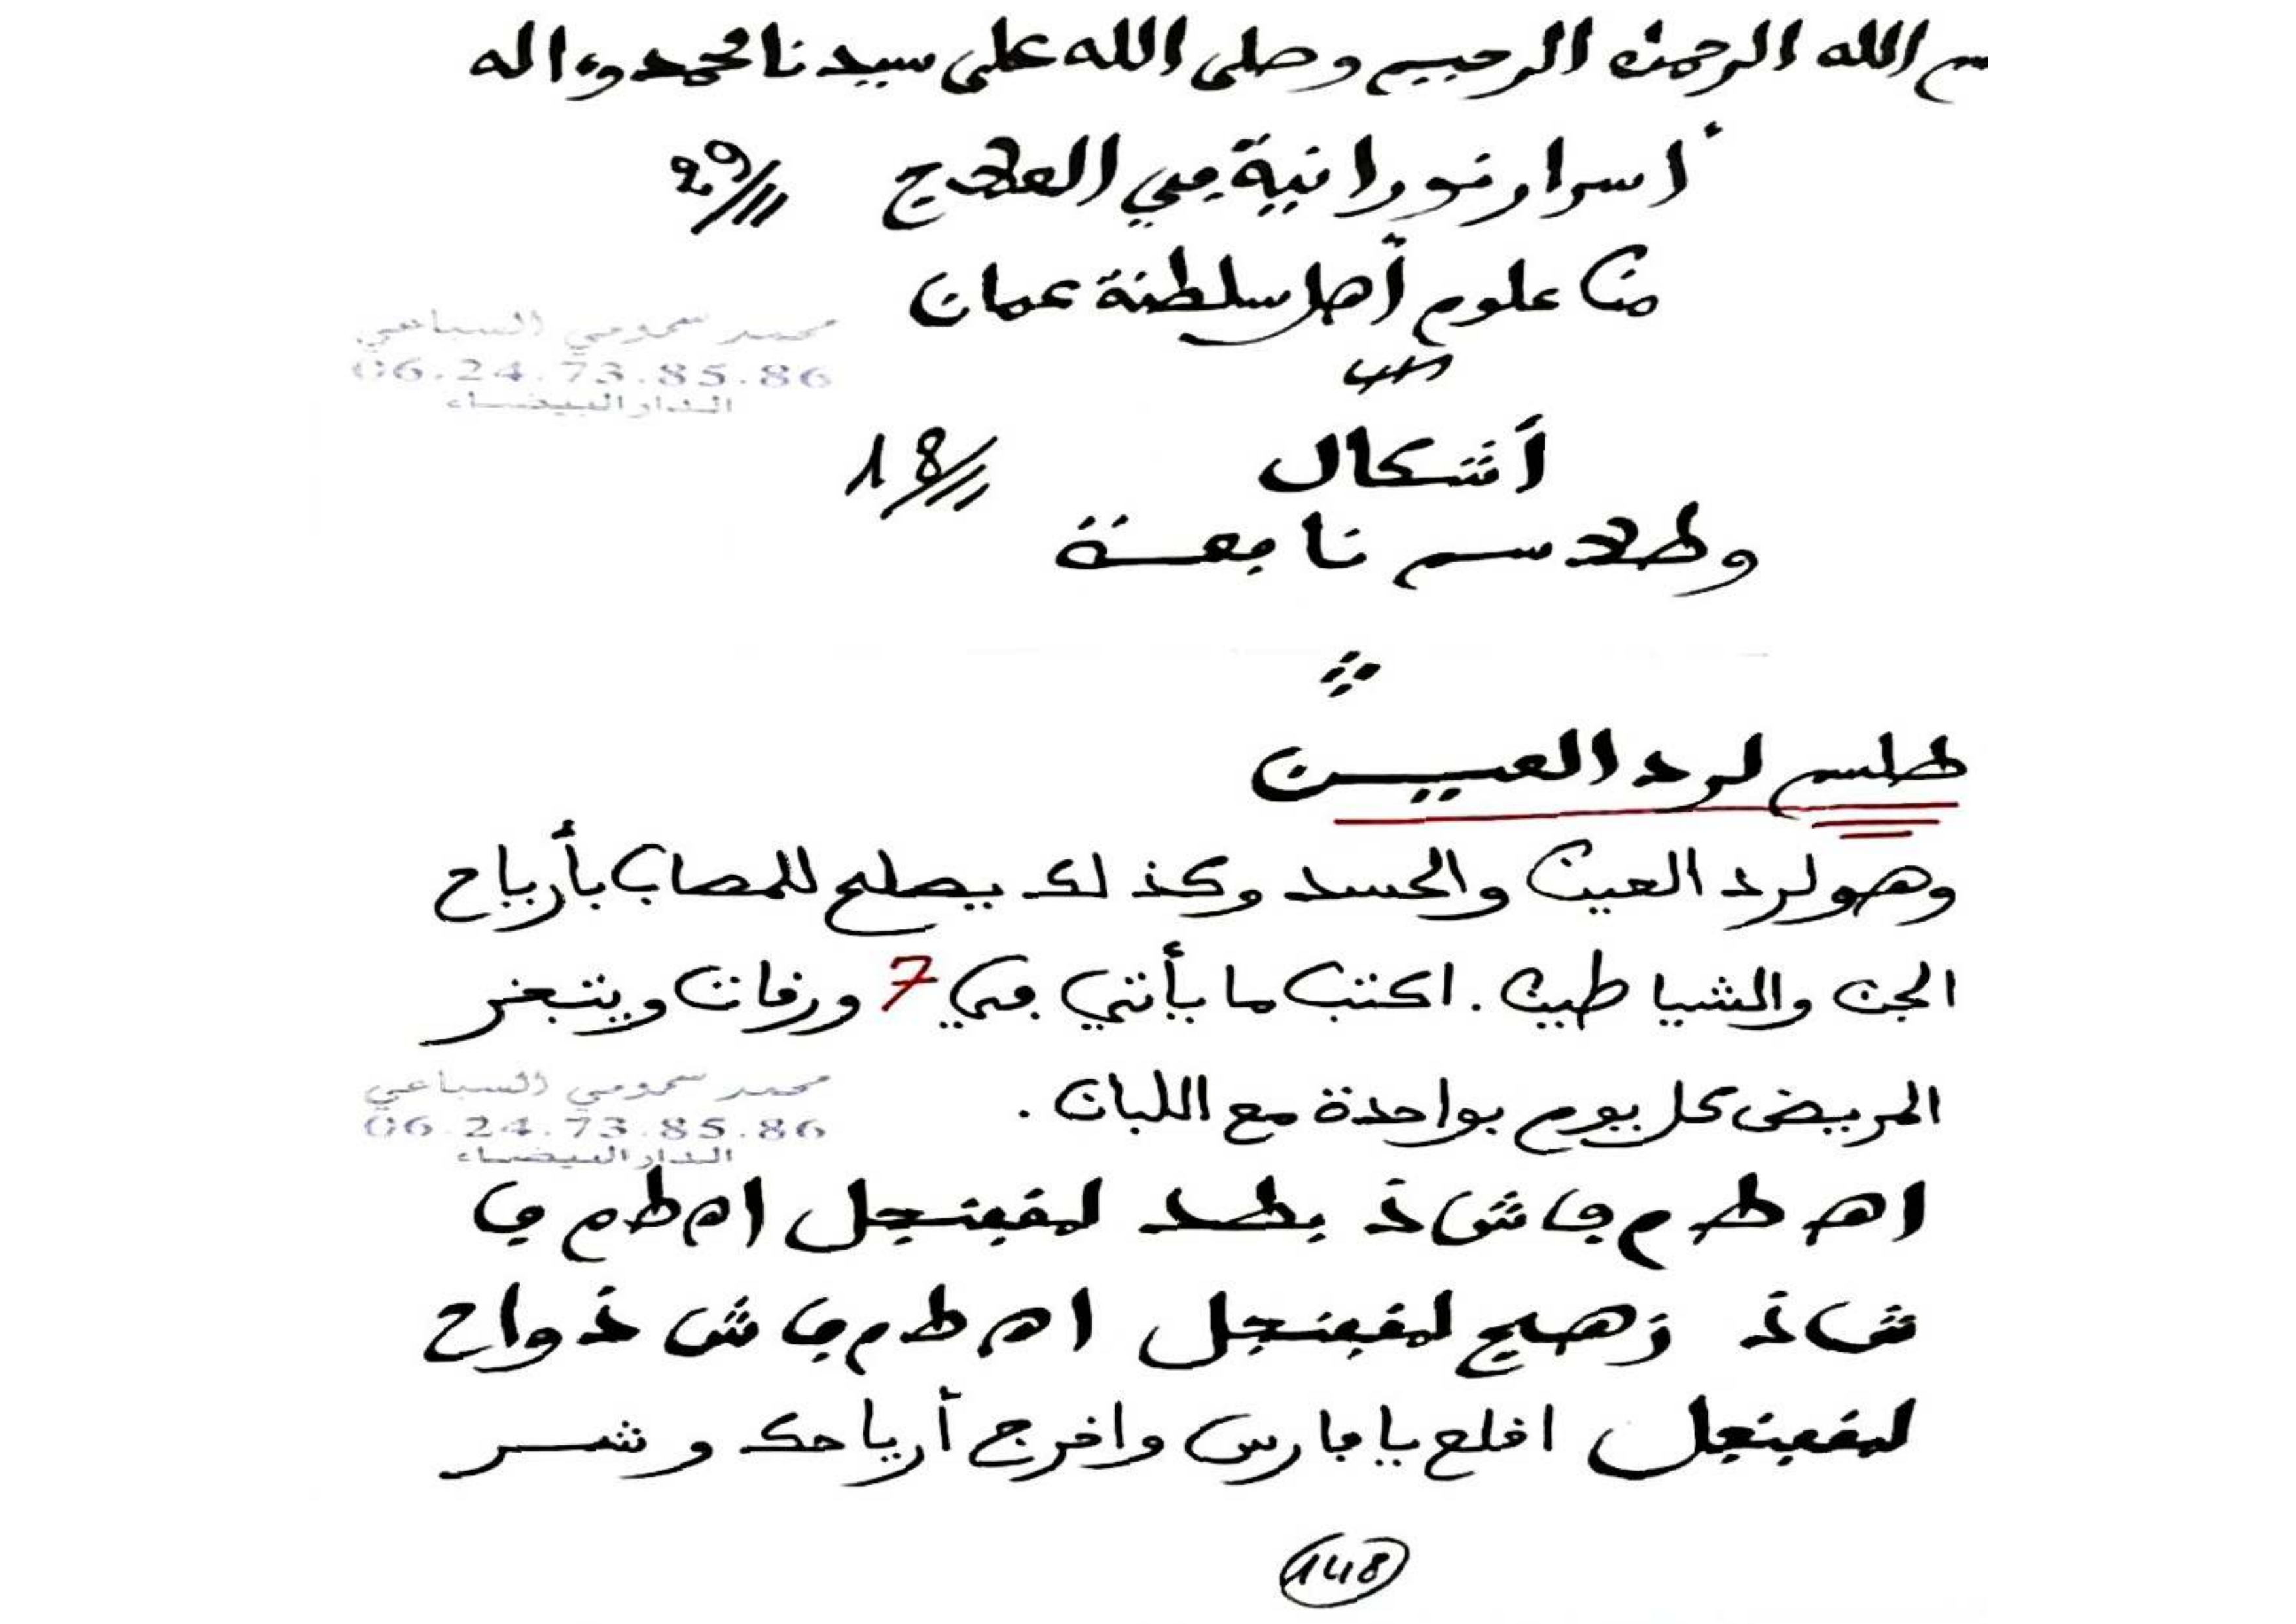 بسم الله الرحمن الرحيم وصلى الله على سيدنا محمد وءاله
أسرار نورانية في العلاج 29
من علوم أهل سلطنة عمان
محمد سمومي السباعي
06.24.73.85.86
الدار البيضاء
أشكال 18
وطلاسم نافعة
طلسم لرد العين
وهو لرد العين والحسد وكذلك يصلح للمصاب بأرياح
الجن والشياطين. اكتب ما يأتي في 7 ورقات ويتبخر
المريض كل يوم بواحدة مع اللبان.
محمد سمومي السباعي
06.24.73.85.86
الدار البيضاء
اه ط م ف ش ذ بطد لمقفنجل اه ط م ف
ش ذ زهج لمقفنجل اه ط م ف ش ذ واح
لمقفنجل اقلع يا فارس واخرج أرياحك وشر
148